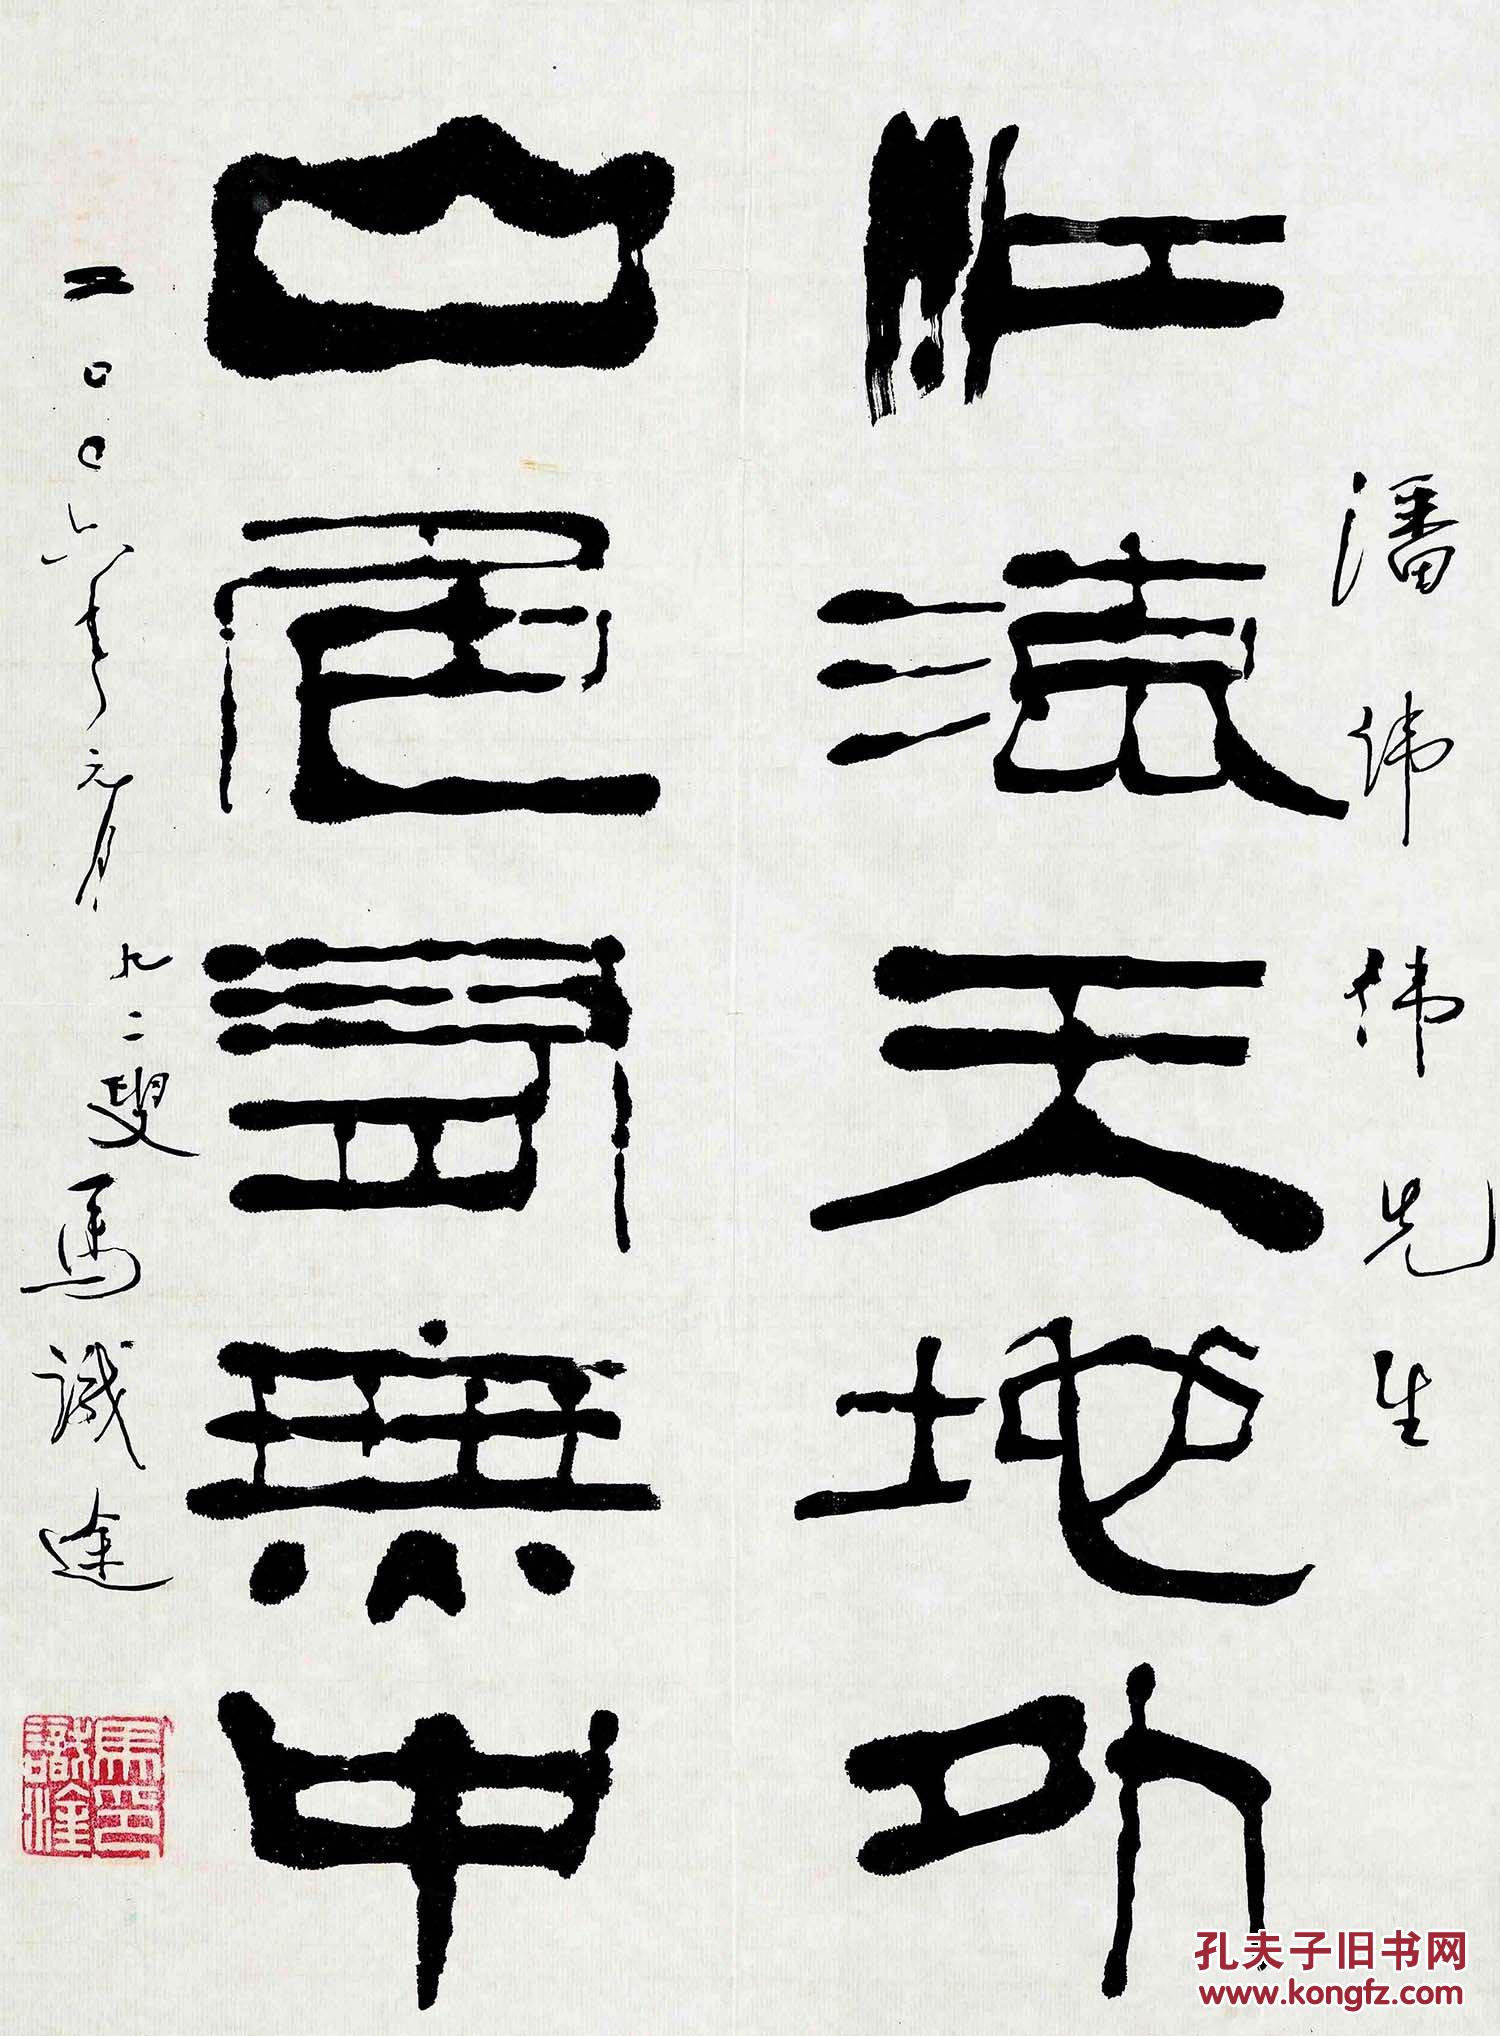 潘伟炜先生
江流天地外
山色有無中
二〇〇六年元月
九二叟馬識途
馬識途印
孔夫子旧书网
www.kongfz.com